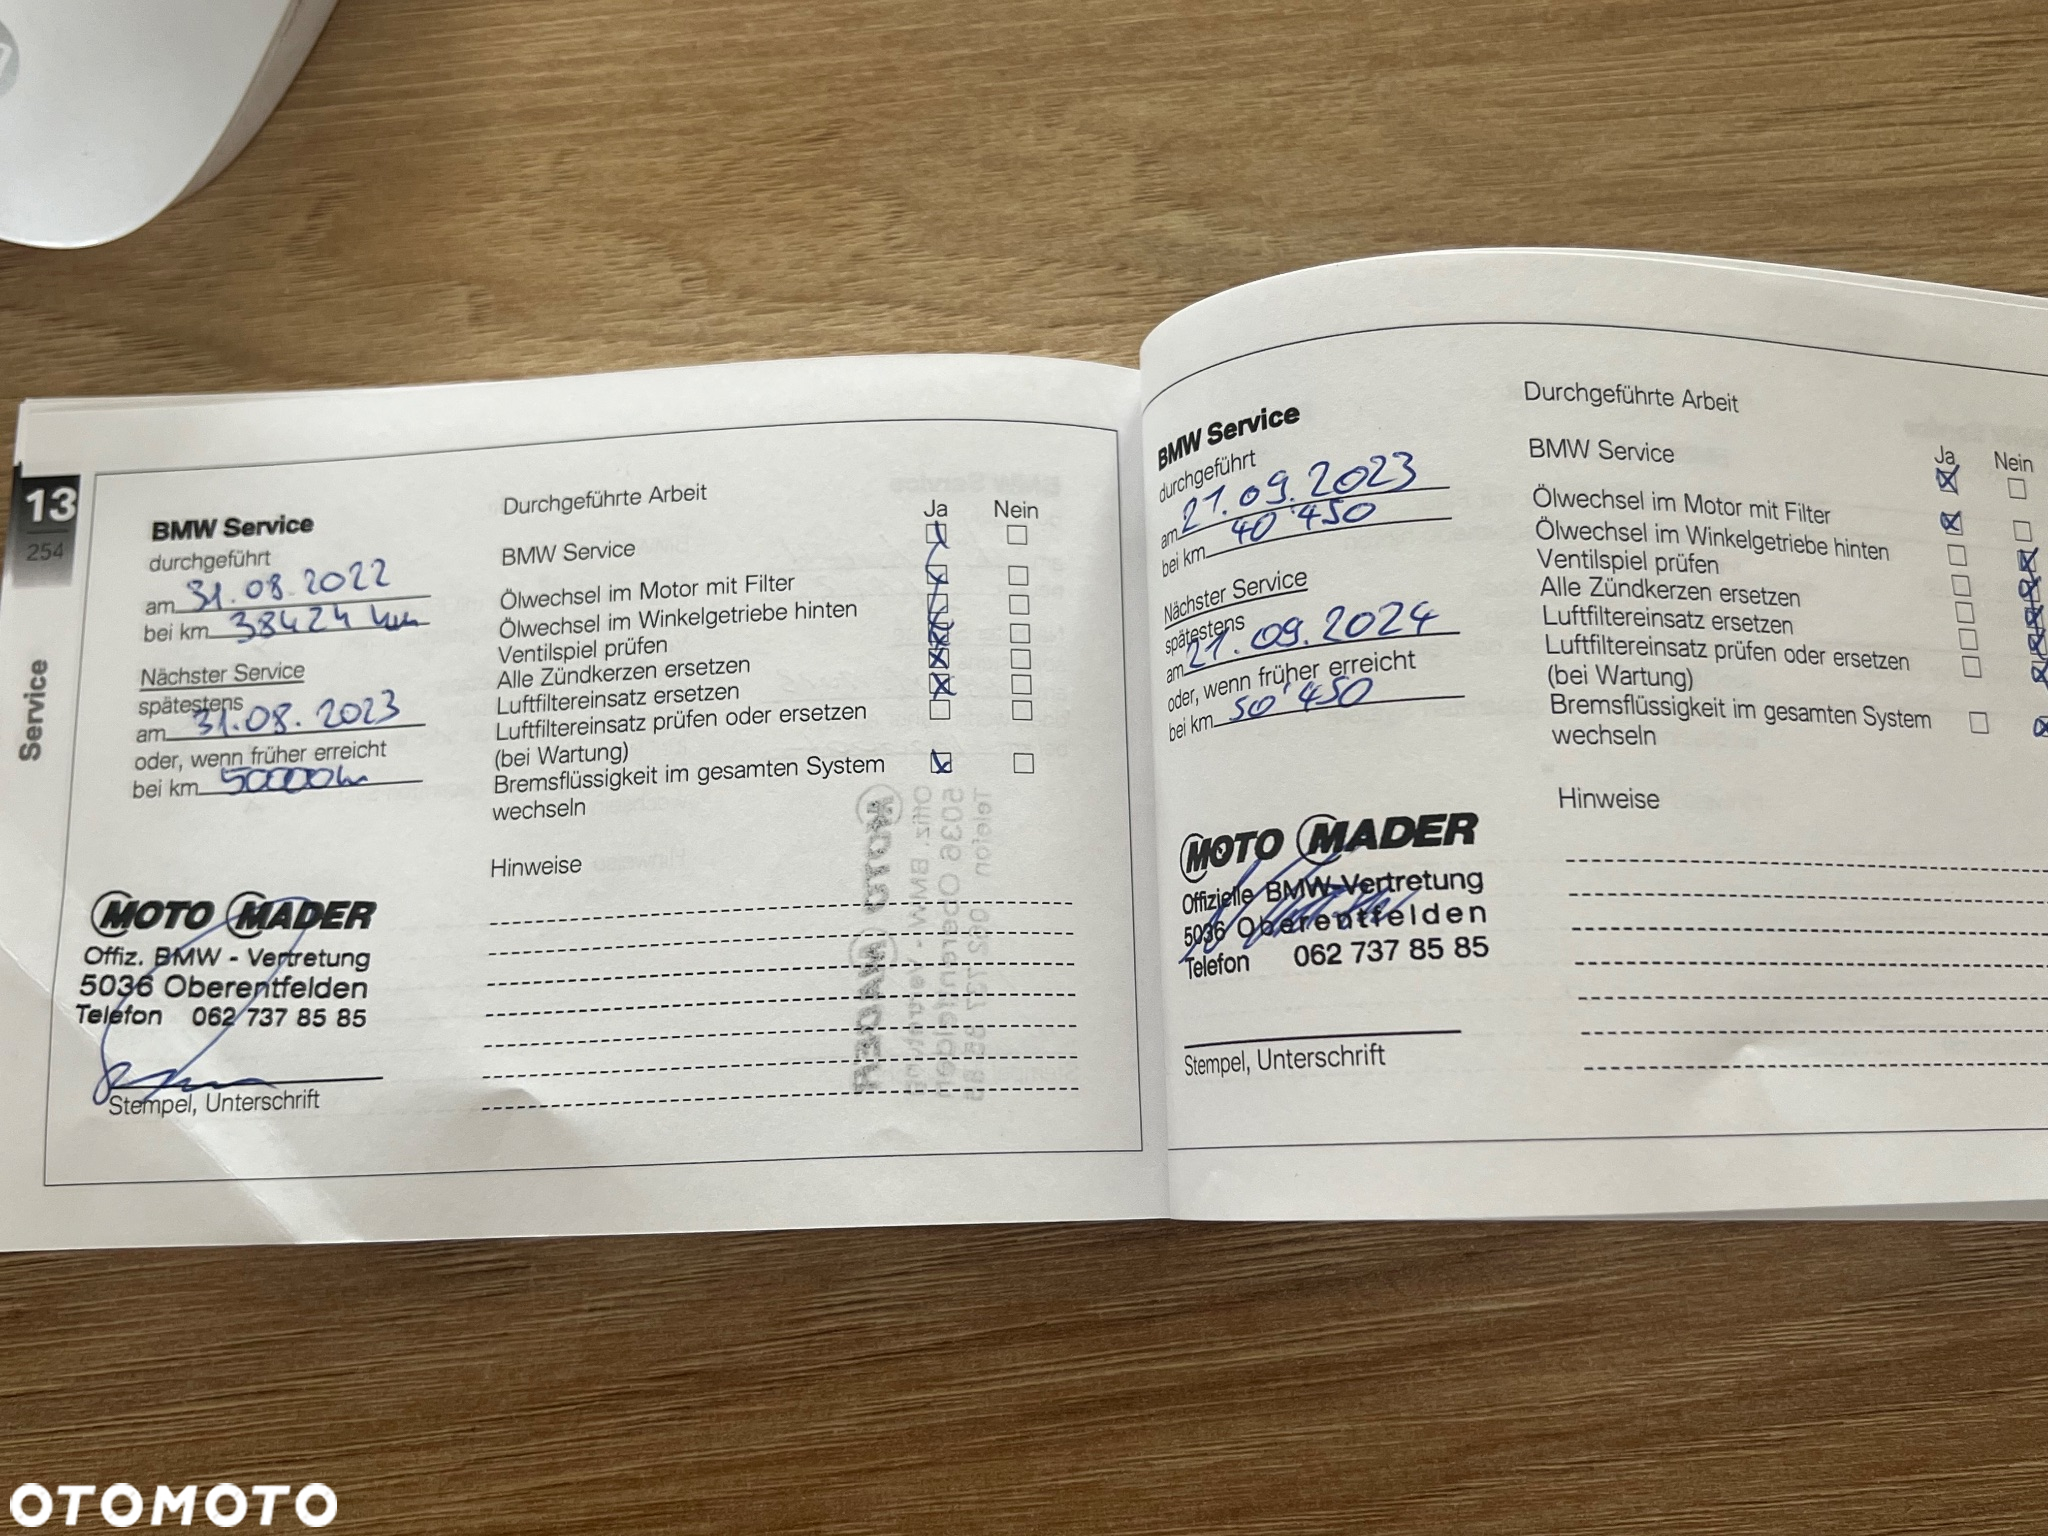 13
254
Service
BMW Service
durchgeführt
am 31.08.2022
bei km 38424 km
Nächster Service
spätestens
am 31.08.2023
oder, wenn früher erreicht
bei km 50000 km
MOTO MADER
Offiz. BMW - Vertretung
5036 Oberentfelden
Telefon 062 737 85 85
Stempel, Unterschrift
Durchgeführte Arbeit
Ja Nein
BMW Service
Ölwechsel im Motor mit Filter
Ölwechsel im Winkelgetriebe hinten
Ventilspiel prüfen
Alle Zündkerzen ersetzen
Luftfiltereinsatz ersetzen
Luftfiltereinsatz prüfen oder ersetzen
(bei Wartung)
Bremsflüssigkeit im gesamten System
wechseln
Hinweise
BMW Service
durchgeführt
am 21.09.2023
bei km 40'450
Nächster Service
spätestens
am 21.09.2024
oder, wenn früher erreicht
bei km 50'450
MOTO MADER
Offizielle BMW-Vertretung
5036 Oberentfelden
Telefon 062 737 85 85
Stempel, Unterschrift
Durchgeführte Arbeit
Ja Nein
BMW Service
Ölwechsel im Motor mit Filter
Ölwechsel im Winkelgetriebe hinten
Ventilspiel prüfen
Alle Zündkerzen ersetzen
Luftfiltereinsatz ersetzen
Luftfiltereinsatz prüfen oder ersetzen
(bei Wartung)
Bremsflüssigkeit im gesamten System
wechseln
Hinweise
OTOMOTO